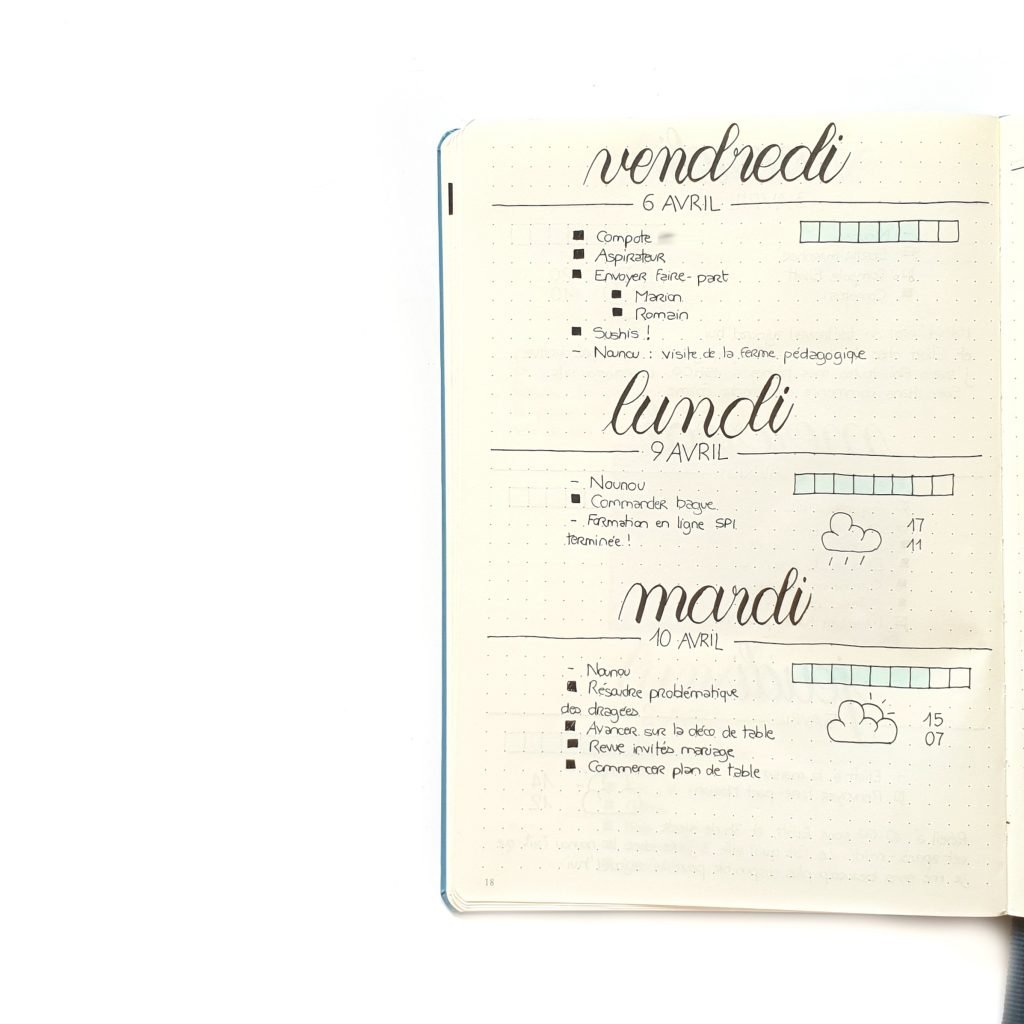 vendredi
6 AVRIL
Compote
Aspirateur
Envoyer faire-part
Marion
Romain
Sushis !
- Nounou : visite de la ferme pédagogique
lundi
9 AVRIL
- Nounou
Commander bague
- Formation en ligne SPI
terminée !
17
11
mardi
10 AVRIL
- Nounou
Résoudre problématique
des dragées
Avancer sur la déco de table
Revue invités mariage
Commencer plan de table
15
07
18